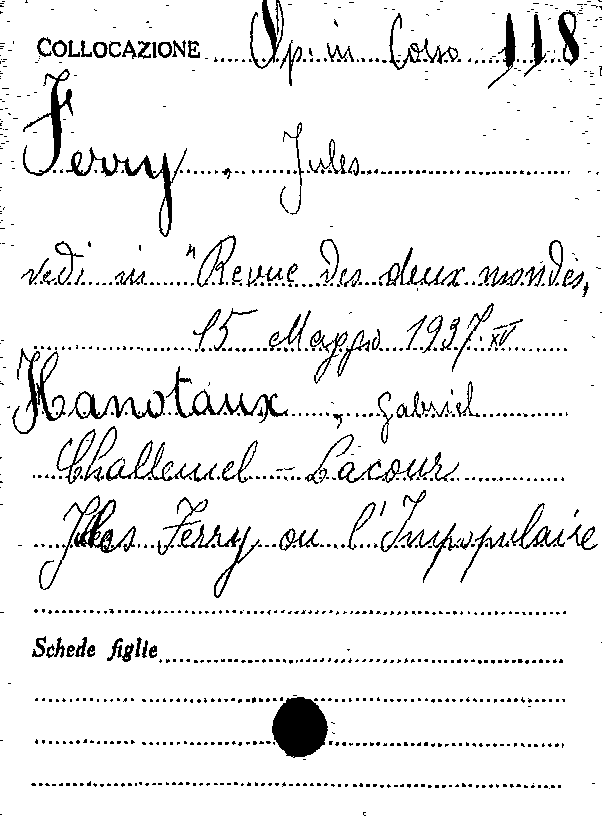 COLLOCAZIONE Op. in Corso 118
Ferry, Jules
vedi in "Revue des deux mondes,
15 Maggio 1937. XV
Hanotaux, Gabriel
Challemel - Lacour
Jules Ferry ou l'Impopulaire
Schede figlie